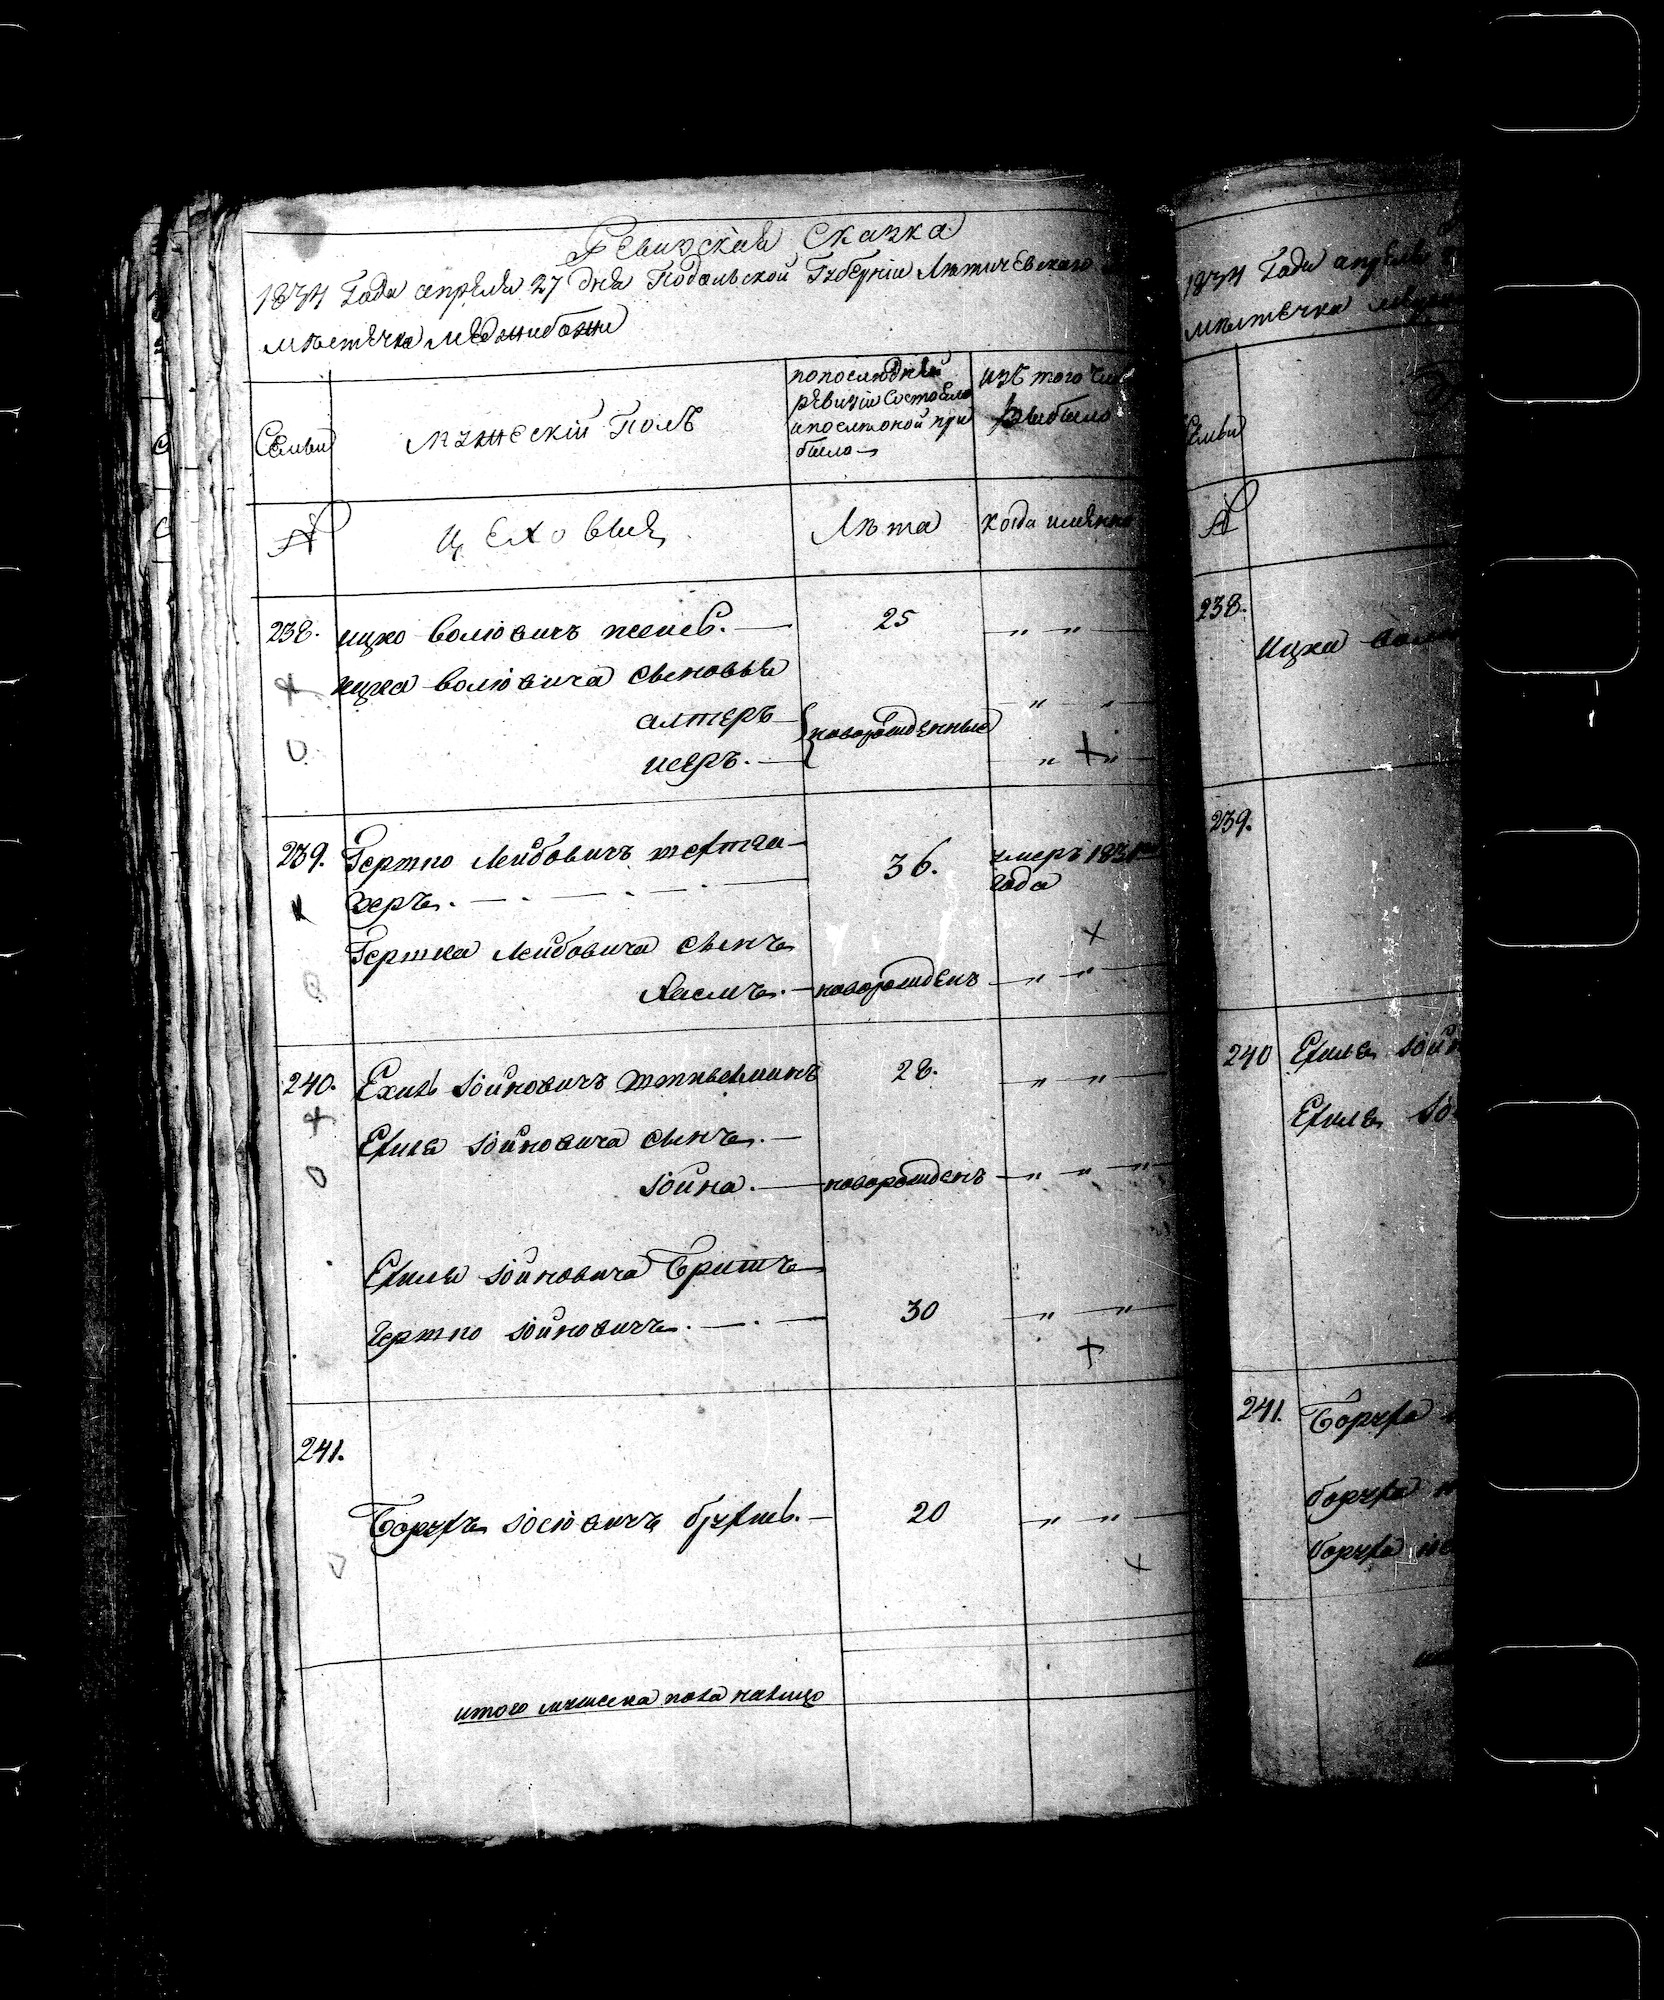 Ревизская Сказка
1834 Года апреля 27 дня Подольской Губерніи Лѣтичевскаго
мѣстечка Меджибожи
Семьи
мужескій Полъ
по последней
ревизіи состояло
и после оной при
было
изъ того
выбыло
№
Цеховыя
Лѣта
когда именно
238.
ицко волковичъ
25
" "
ицка волковича сыновья
алтеръ
новорожденные
" "
исеръ.
" "
239.
Гершко Лейбовичъ
36.
умеръ 1831
херъ.
года
Гершка Лейбовича сынъ
Хаимъ.
новорожденъ
" "
240.
Ехиль Іойновичъ
28.
" "
Ехиля Іойновича сынъ.
Іойна.
новорожденъ
" " "
Ехиля Іойновича Братъ
Гершко Іойновичъ.
30
" "
241.
Борухъ Іосіовичъ
20
" "
итого мужеска пола налицо
1834 Года апреля
мѣстечка
Семьи
№
238.
Ицка
239.
240
Ехиля
Ехиля
241.
Боруха
Боруха
Боруха